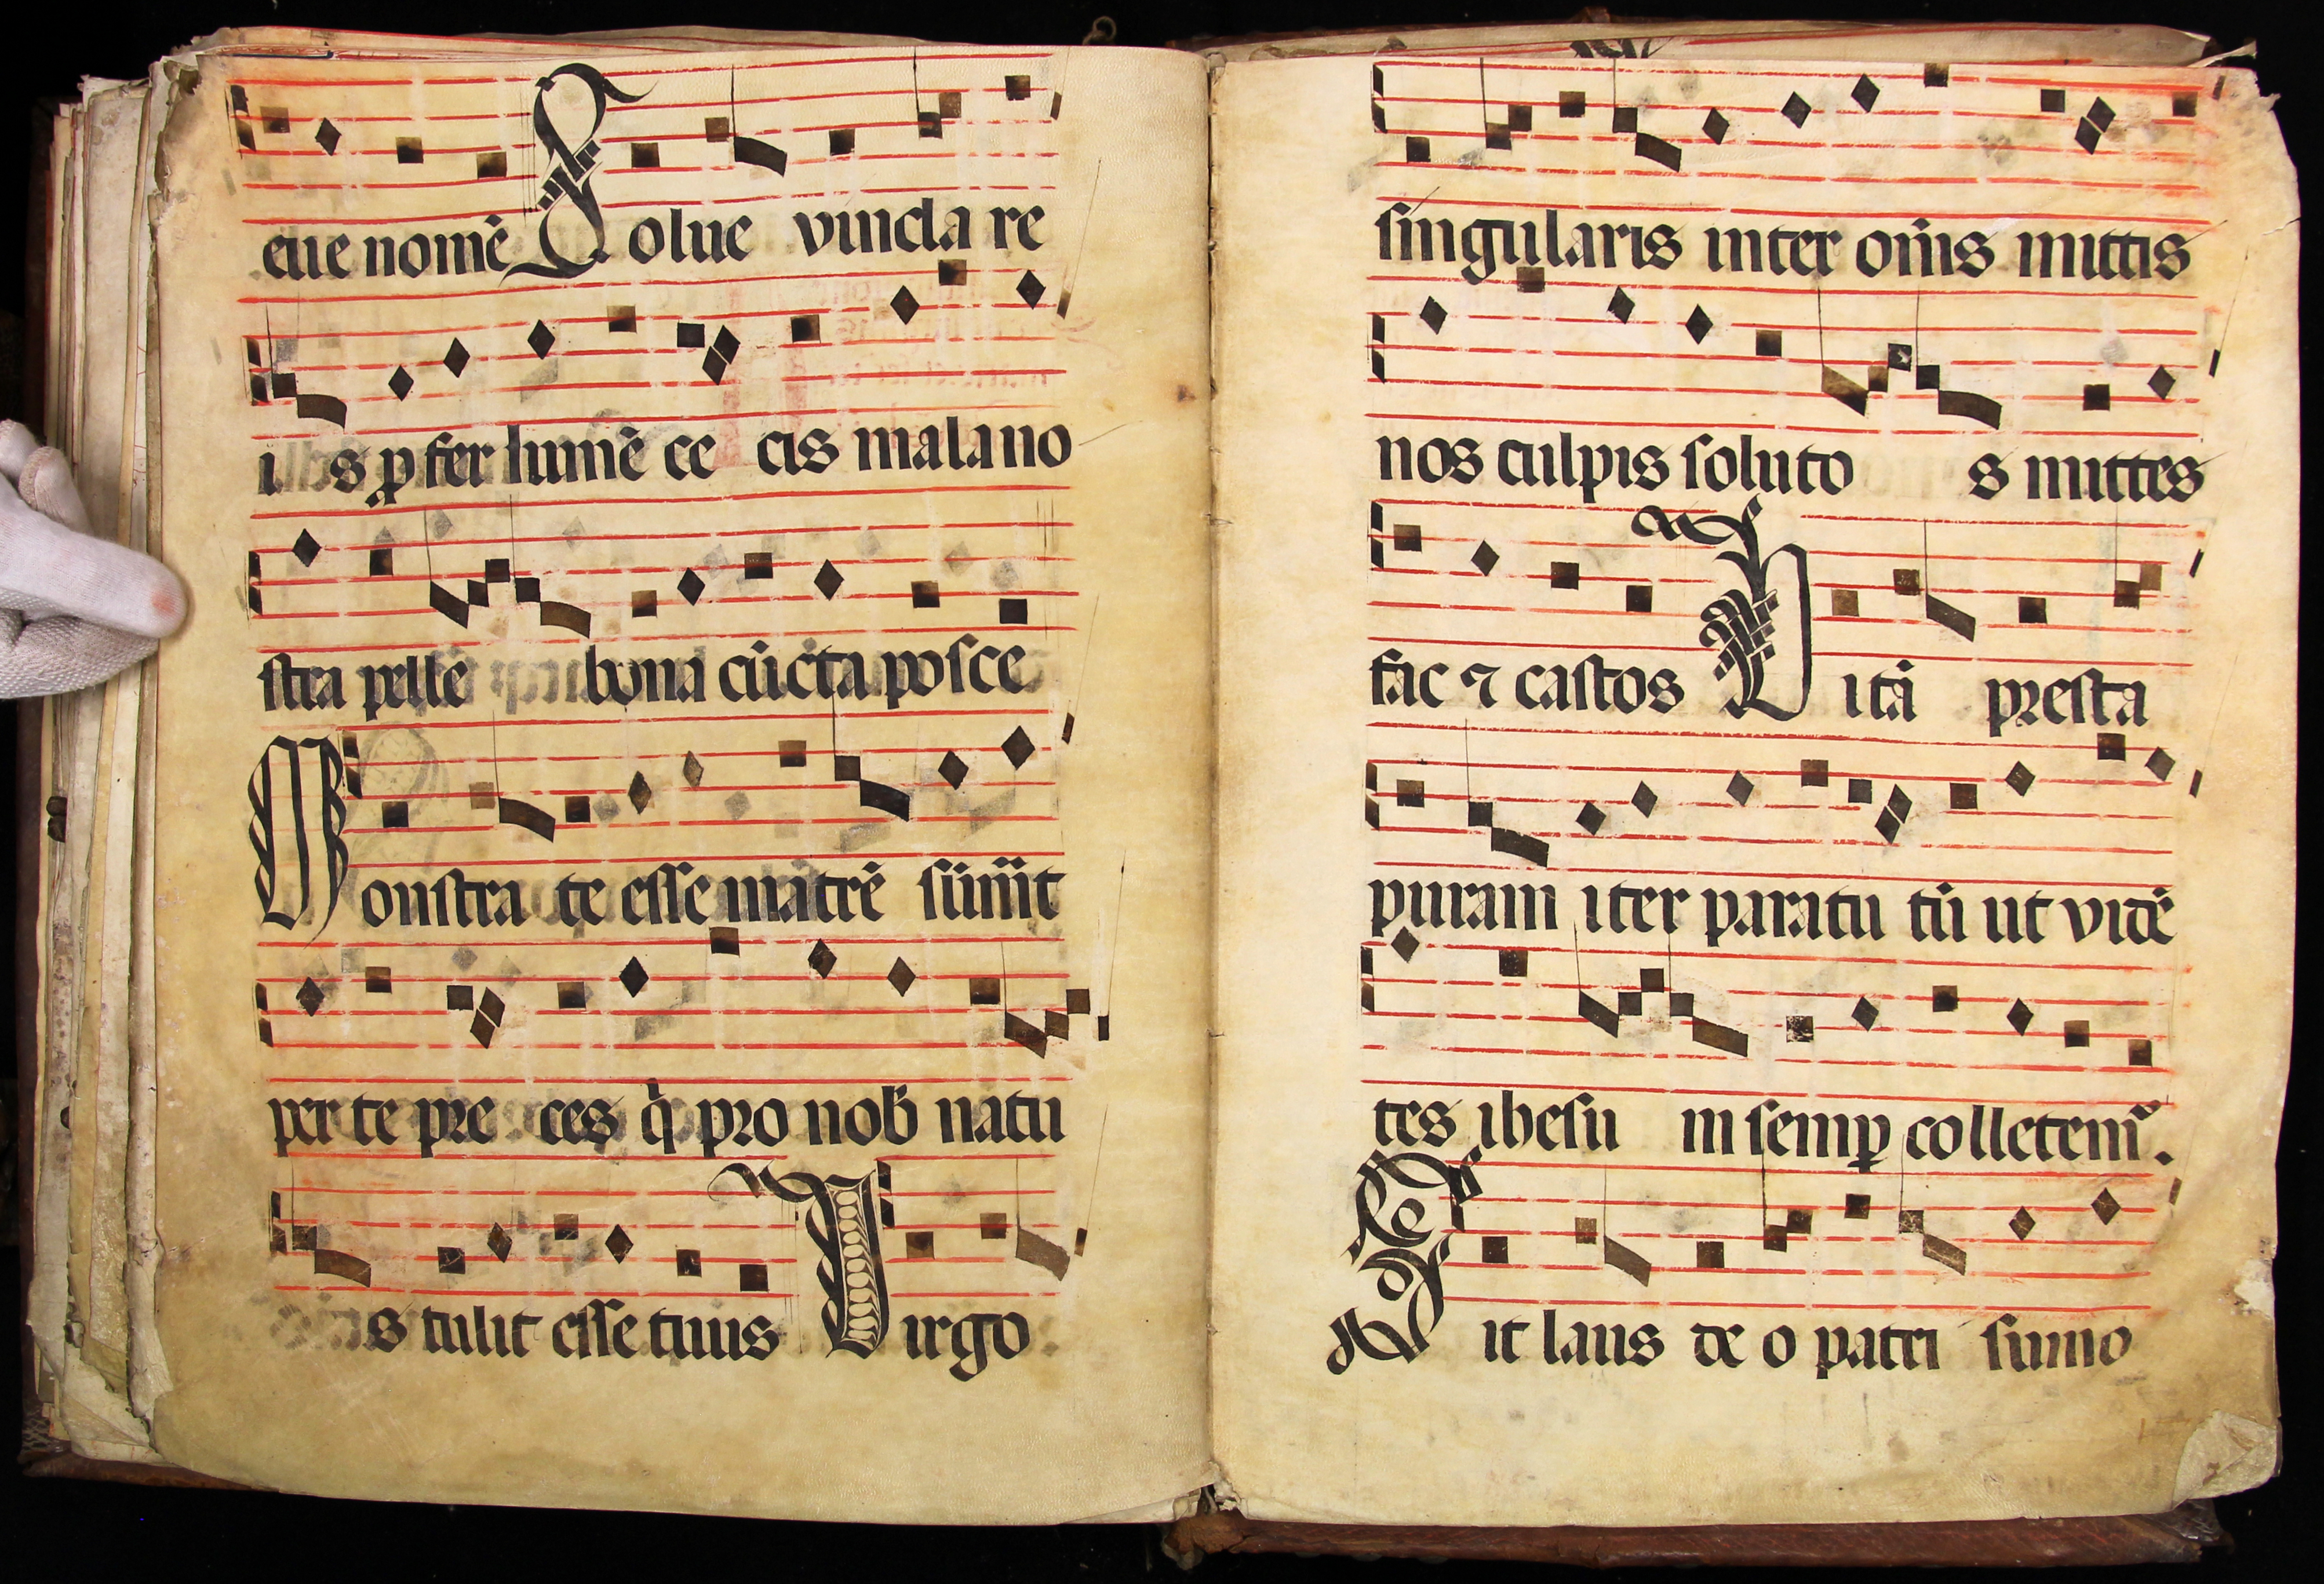 eue nomē Solue vincla re
i s ꝓfer lumē ce cis mala no
ſtra pelle bona cūcta poſce
Monſtra te eſſe matrē ſumīt
per te pre ces q̇ pro nob natu
s tulit eſſe tuus Virgo
ſingularis inter om̄is mittis
nos culpis ſoluto s mittes
fac ⁊ caſtos Vitā preſta
puram iter paratu tū ut vidē
tes iheſu in ſemꝑ colletem᷒.
Sit laus de o patri ſumo